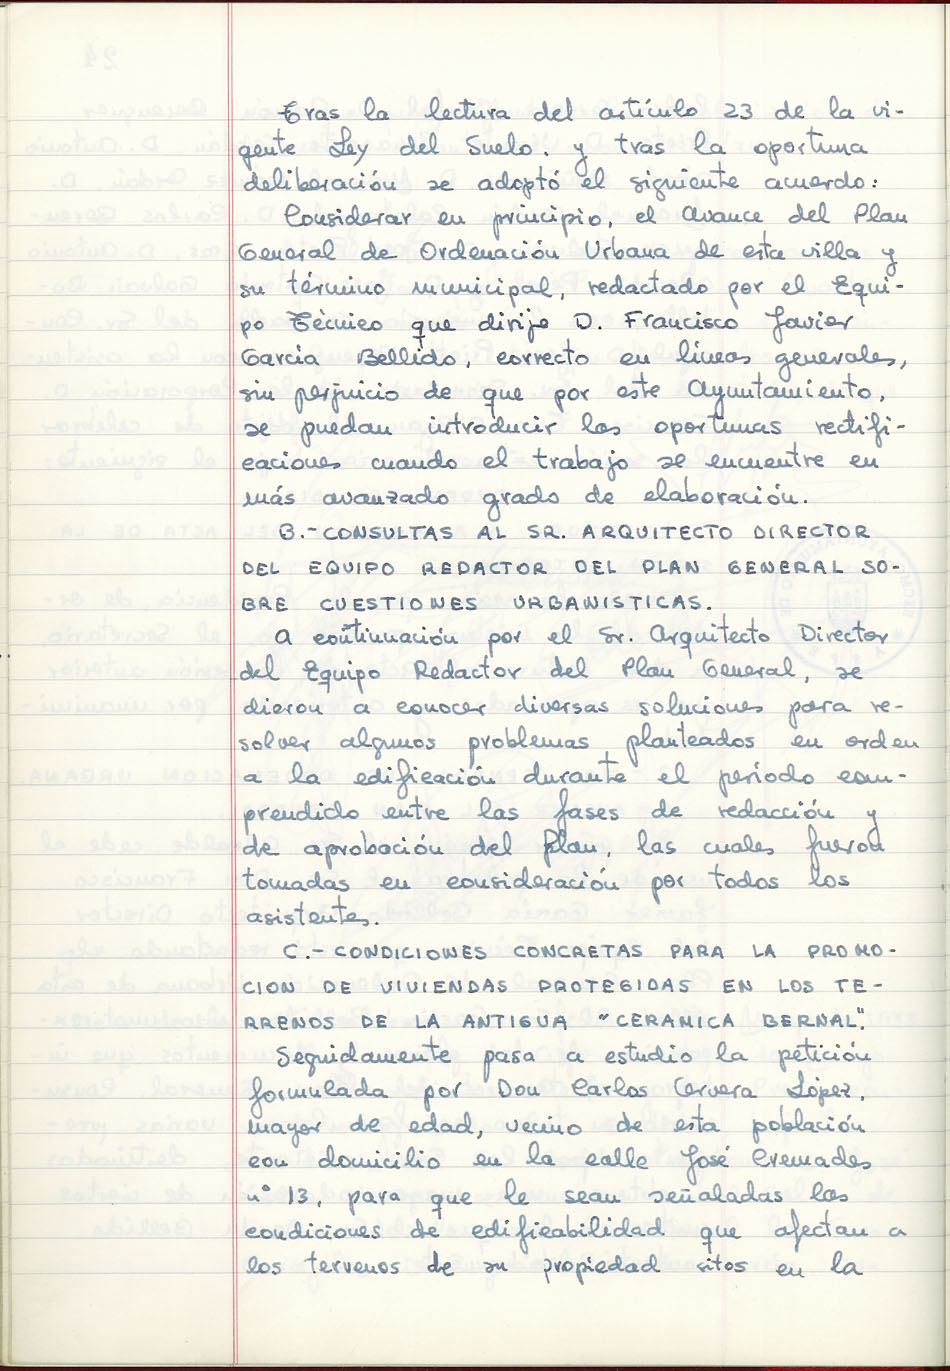 Tras la lectura del artículo 23 de la vi-
gente Ley del Suelo. y tras la oportuna
deliberación se adoptó el siguiente acuerdo:
Considerar en principio, el Avance del Plan
General de Ordenación Urbana de esta villa y
su término municipal, redactado por el Equi-
po Técnico que dirije D. Francisco Javier
García Bellido, correcto en líneas generales,
sin perjuicio de que por este Ayuntamiento,
se puedan introducir las oportunas rectifi-
caciones cuando el trabajo se encuentre en
más avanzado grado de elaboración.
B.- CONSULTAS AL SR. ARQUITECTO DIRECTOR
DEL EQUIPO REDACTOR DEL PLAN GENERAL SO-
BRE CUESTIONES URBANISTICAS.
A continuación por el Sr. Arquitecto Director
del Equipo Redactor del Plan General, se
dieron a conocer diversas soluciones para re-
solver algunos problemas planteados en orden
a la edificación durante el período com-
prendido entre las fases de redacción y
de aprobación del Plan, las cuales fueron
tomadas en consideración por todos los
asistentes.
C.- CONDICIONES CONCRETAS PARA LA PROMO-
CION DE VIVIENDAS PROTEGIDAS EN LOS TE-
RRENOS DE LA ANTIGUA "CERAMICA BERNAL".
Seguidamente pasa a estudio la petición
formulada por Don Carlos Cervera López,
mayor de edad, vecino de esta población
con domicilio en la calle José Cremades
nº 13, para que le sean señaladas las
condiciones de edificabilidad que afectan a
los terrenos de su propiedad sitos en la